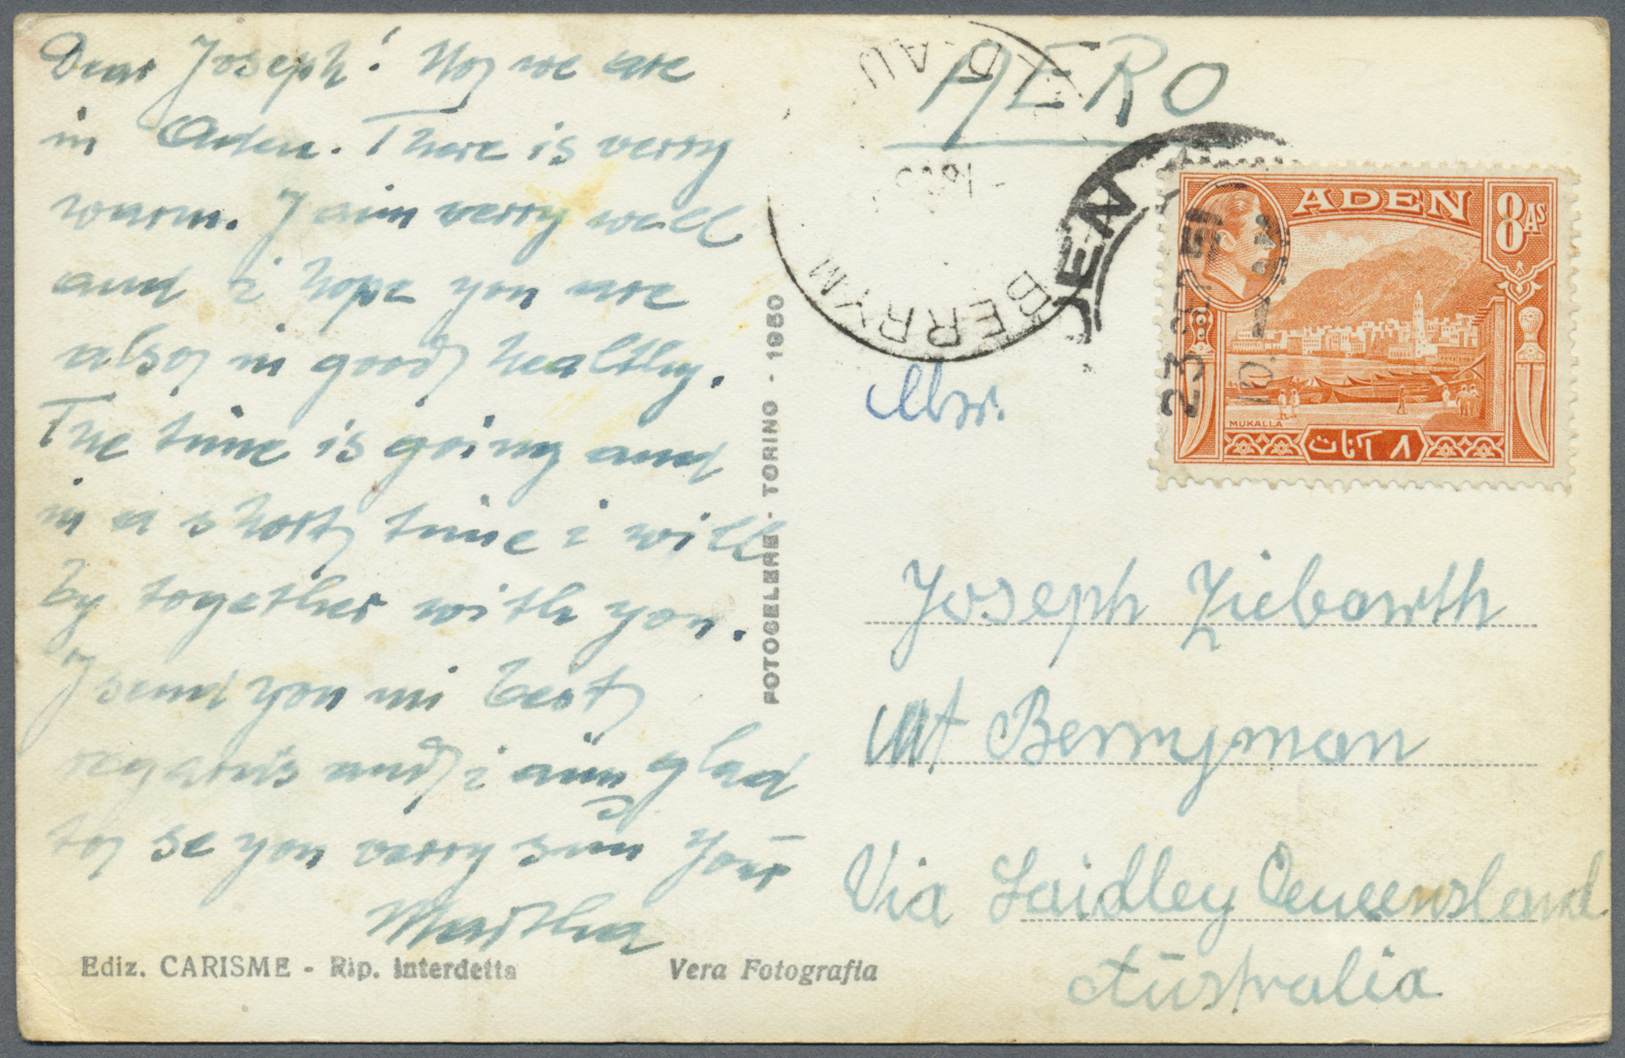 Dear Joseph! Noy we are
in Aden. There is verry
warm. I aim verry well
and i hope you are
alsoy in good healthy.
The time is going and
in a short time i will
by together with you.
I send you mi best
regards and i aim glad
toy se you verry sun your
Martha
Ediz. CARISME - Rip. interdetta
Vera Fotografia
FOTOCELERE - TORINO - 1950
AERO
BERRYM
AU
DEN
23 APR 51
10.
ADEN
8 AS
MUKALLA
٨ آنات
Mr.
Joseph Ziebarth
Mt Berryman
Via Laidley Queensland
Australia